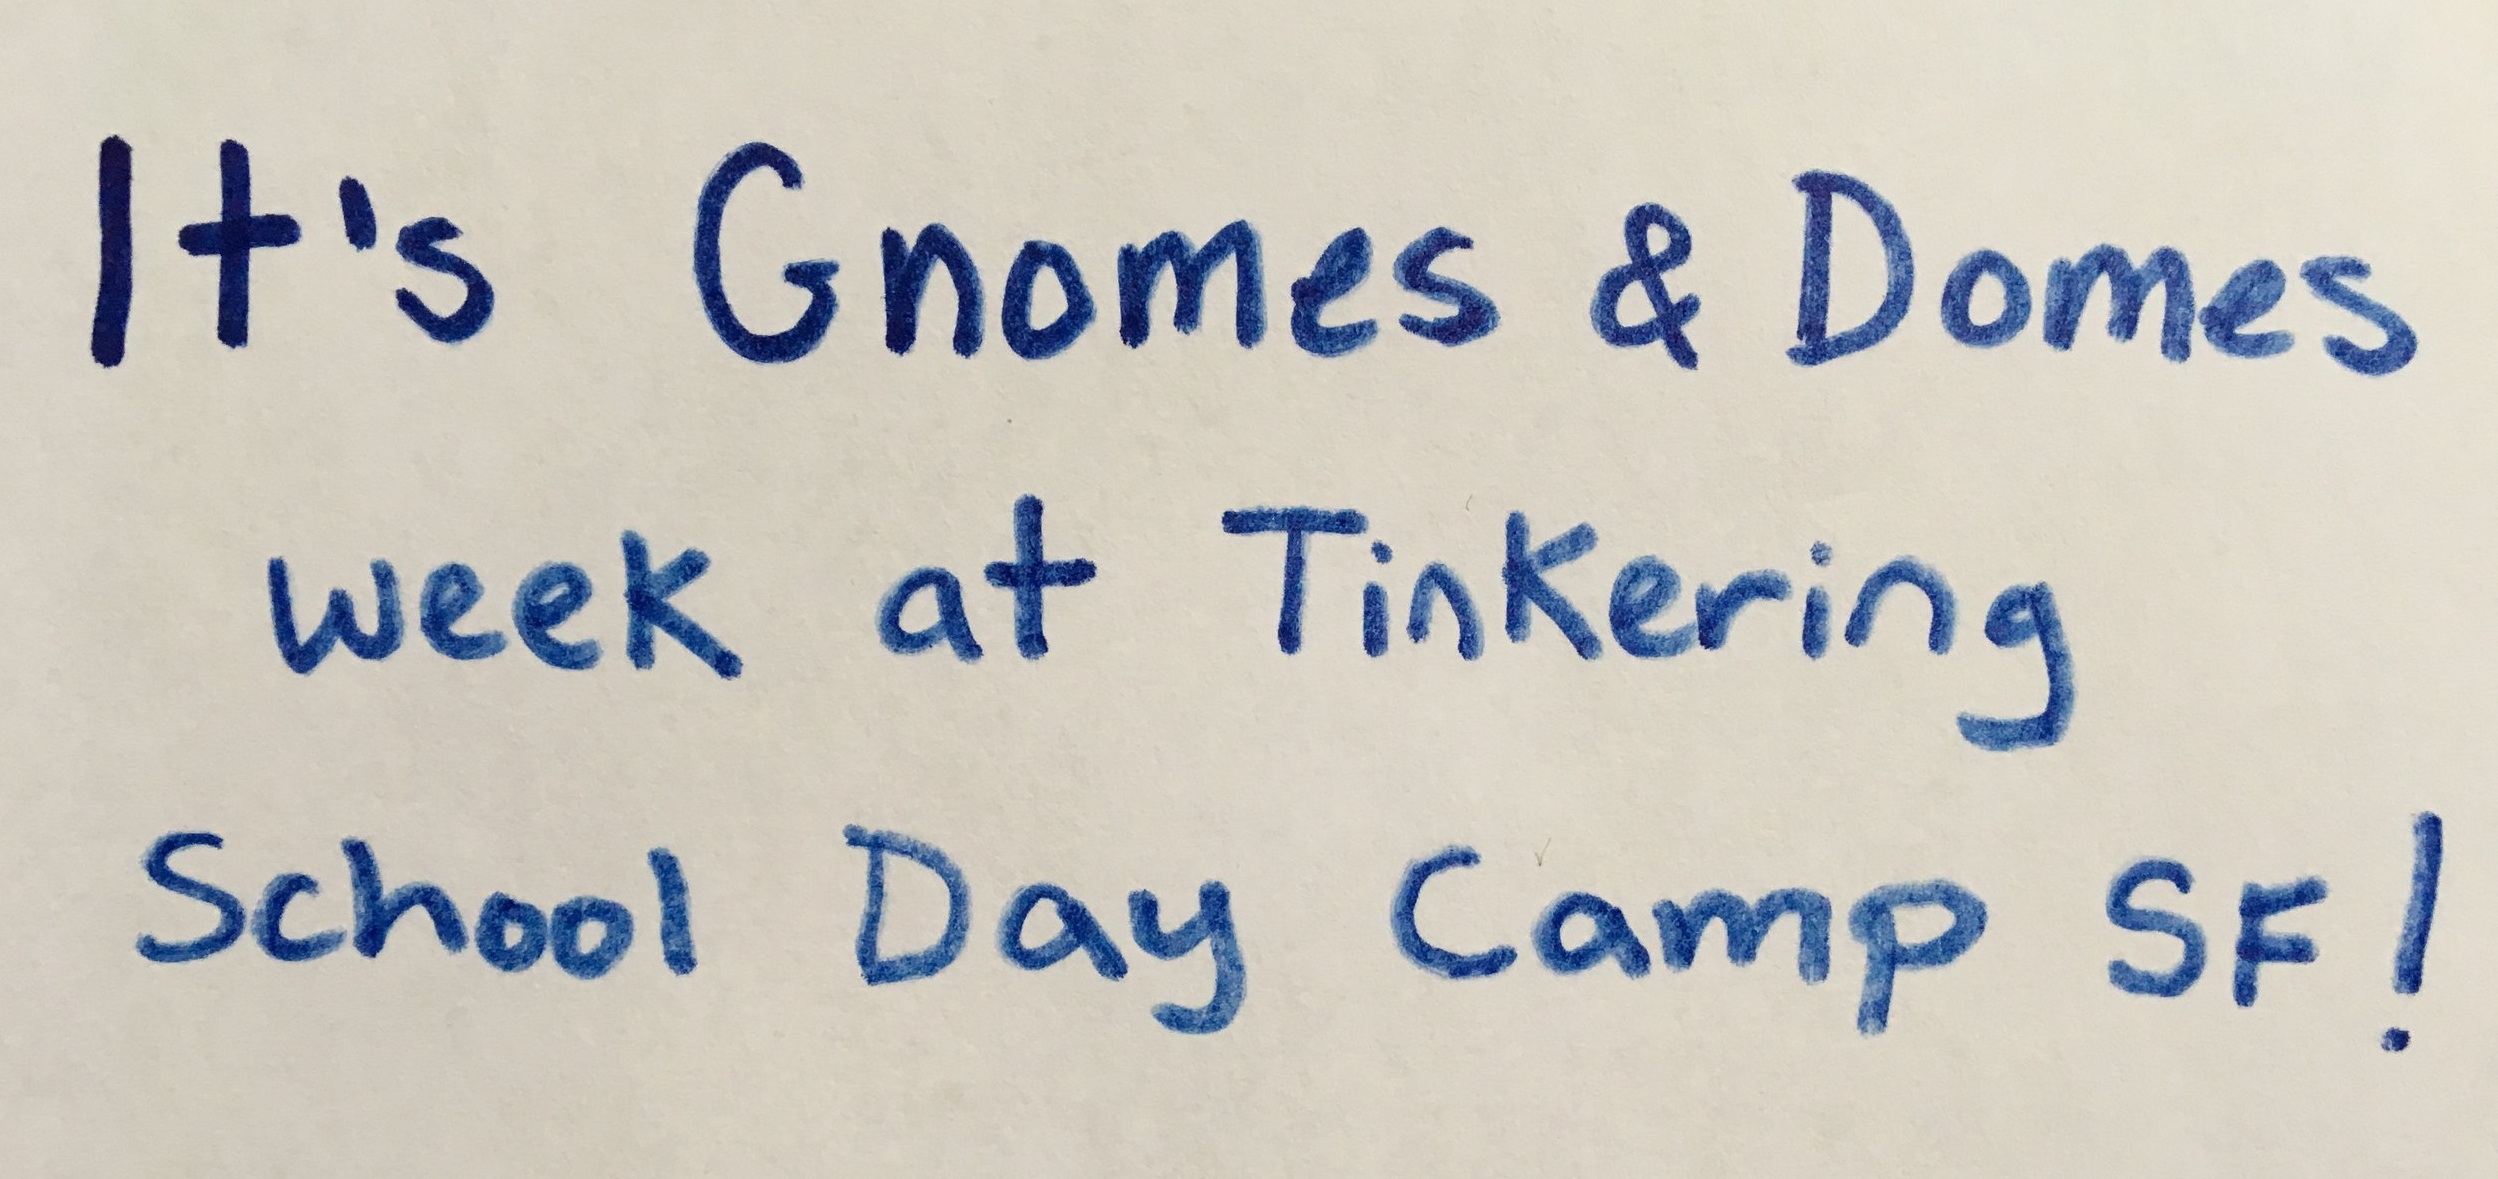 It's Gnomes & Domes
week at Tinkering
School Day Camp SF!